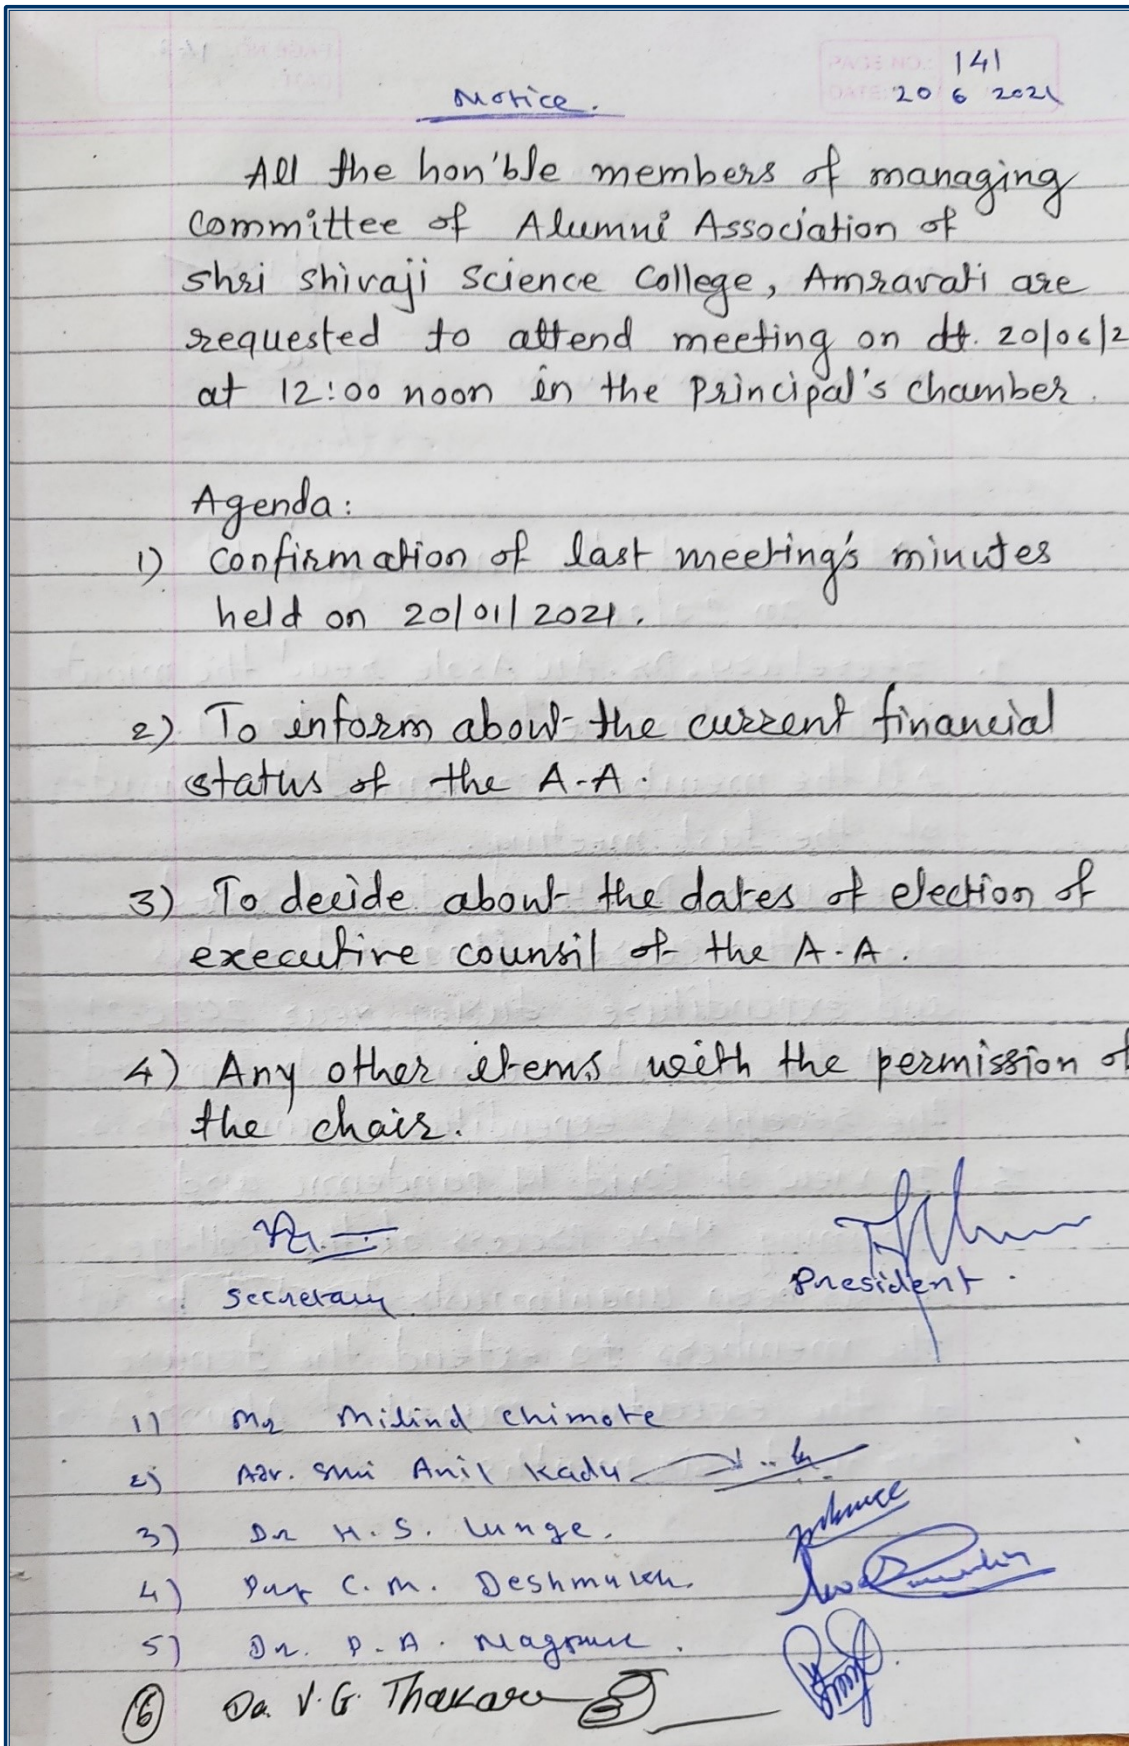 PAGE NO. 141
DATE: 20 6 2021
Notice.
All the hon'ble members of managing
Committee of Alumni Association of
Shri Shivaji Science College, Amravati are
requested to attend meeting on dt. 20/06/2
at 12:00 noon in the Principal's chamber.
Agenda:
1) Confirmation of last meeting's minutes
held on 20/01/2021.
2) To inform about the current financial
status of the A-A.
3) To decide about the dates of election of
executive counsil of the A.A.
4) Any other items with the permission of
the chair.
Secretary
President.
1) Mr Milind Chimote
2) Adv. Shri Anil Kadu
3) Dr H.S. Lunge.
4) Prof C.M. Deshmukh.
5) Dr. P.A.
6 Dr. V.G. Thakare